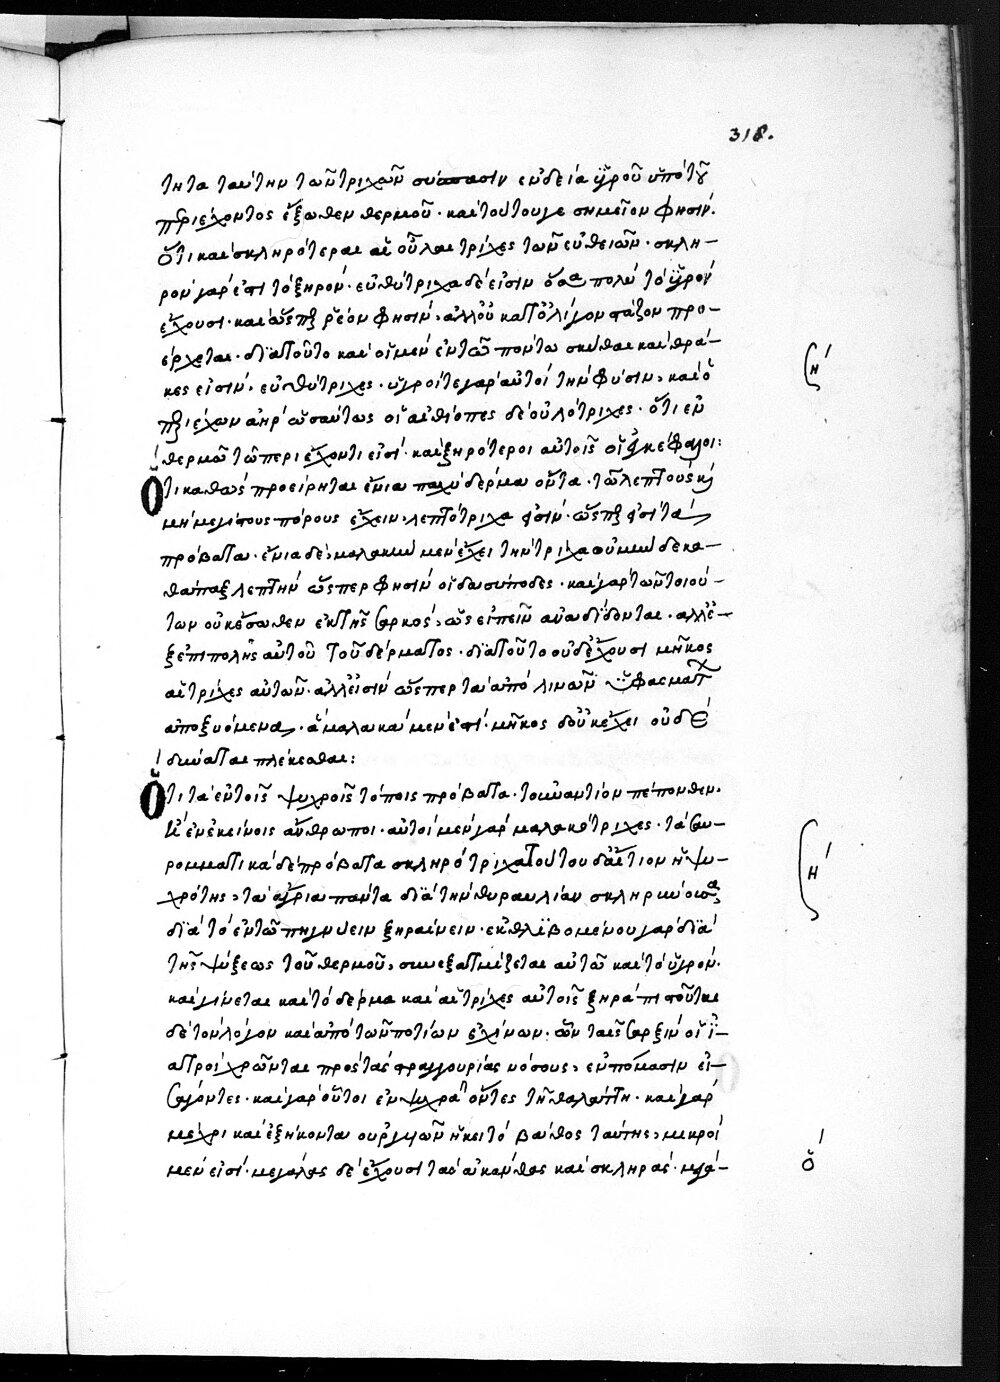 318.
τητα ταύτην τῶν τριχῶν σύστασιν ἐνδεία ὑγροῦ ὑπὸ τοῦ
περιέχοντος ἔξωθεν θερμοῦ· καὶ τούτου γε σημεῖον φησὶν.
ὅτι καὶ σκληρότεραι αἱ οὖλαι τρίχες τῶν εὐθειῶν· σκλη-
ρὸν γὰρ ἐστὶ τὸ ξηρόν· εὐθύτριχα δέ εἰσιν ὅσα πολὺ τὸ ὑγρὸν
ἔχουσι· καὶ ὥσπερ ῥέον φησίν, ἀλλ' οὐ κατ' ὀλίγον στάζον προ-
έρχεται· διὰ τοῦτο καὶ οἱ μὲν ἐν τῷ πόντω σκύθαι καὶ θρᾶ-
κες εἰσὶν, εὐθύτριχες· ὑγροί τε γὰρ αὐτοὶ τὴν φύσιν, καὶ ὁ
περιέχων ἀὴρ ὡσαύτως οἱ αἰθίοπες δὲ οὐλότριχες· ὅτι ἐν
θερμῶ τῶ περιέχοντι εἰσὶ· καὶ ξηρότεροι αὐτοῖς οἱ ἐγκέφαλοι:
Ὅτι καθὼς προείρηται ἔνια παχύδερμα ὄντα· τῶ λεπτοὺς καὶ
μὴ μεγίστους πόρους ἔχειν, λεπτότριχα ἐστὶν· ὥσπερ ἐστὶ τὰ
πρόβατα· ἔνια δὲ, μαλακὴν μὲν ἔχει τὴν τρίχα οὐ μὴν δὲ κα-
θάπαξ λεπτὴν ὥσπερ φησὶν οἱ δασύποδες· καὶ γὰρ τῶν τοιού-
των οὐκ ἔσωθεν ἐκ τῆς σαρκός, ὡς εἰπεῖν ἀναδίδονται· ἀλλ' ἐ-
ξ ἐπιπολῆς αὐτοῦ τοῦ δέρματος· διὰ τοῦτο οὐδ' ἔχουσι μῆκος
αἱ τρίχες αὐτῶν· ἀλλ' εἰσὶν ὥσπερ τὰ ἀπὸ λινῶν ὑφασμάτων
ἀποξυόμενα, ἃ μαλακὰ μὲν ἐστὶ· μῆκος δ' οὐκ ἔχει οὐδὲ
δύναται πλέκεσθαι:
Ὅτι τὰ ἐν τοῖς ψυχροῖς τόποις πρόβατα· τοὐναντίον πέπονθεν.
οἱ ἐν ἐκείνοις ἄνθρωποι· αὐτοὶ μὲν γὰρ μαλακότριχες· τὰ σαυ-
ρομματικὰ δὲ πρόβατα σκληρότριχα τούτου δ' αἴτιον ἡ ψυ-
χρότης, τὰ ἄγρια πάντα διὰ τὴν θυραυλίαν σκληρύνουσα,
διὰ τὸ ἐν τῶ πηγνύειν ξηραίνειν· ἐκθλιβομένου γὰρ διὰ
τῆς ψύξεως τοῦ θερμοῦ, συνεξατμίζεται αὐτῶ καὶ τὸ ὑγρόν.
καὶ γίνεται καὶ τὸ δέρμα καὶ αἱ τρίχες αὐτοῖς ξηρά πιστοῦται
δὲ τὸν λόγον καὶ ἀπὸ τῶν ποτίων ἐχίνων· ὧν ταῖς σαρξὶν οἱ ἰ-
ατροὶ χρῶνται πρὸς τὰς στραγγουρίας νόσους, ἐν πόμασιν εἰ-
σάγοντες· καὶ γὰρ οὗτοι ἐν ψυχρᾶ ὄντες τῆ θαλάττη· καὶ γὰρ
μέχρι καὶ ἑξήκοντα ὀργυιῶν ἥκει τὸ βάθος ταύτης, μικροὶ
μὲν εἰσί· μεγάλας δὲ ἔχουσι τὰς ἀκάνθας καὶ σκληράς· μεγά-
ση΄
ση΄
ὅ΄